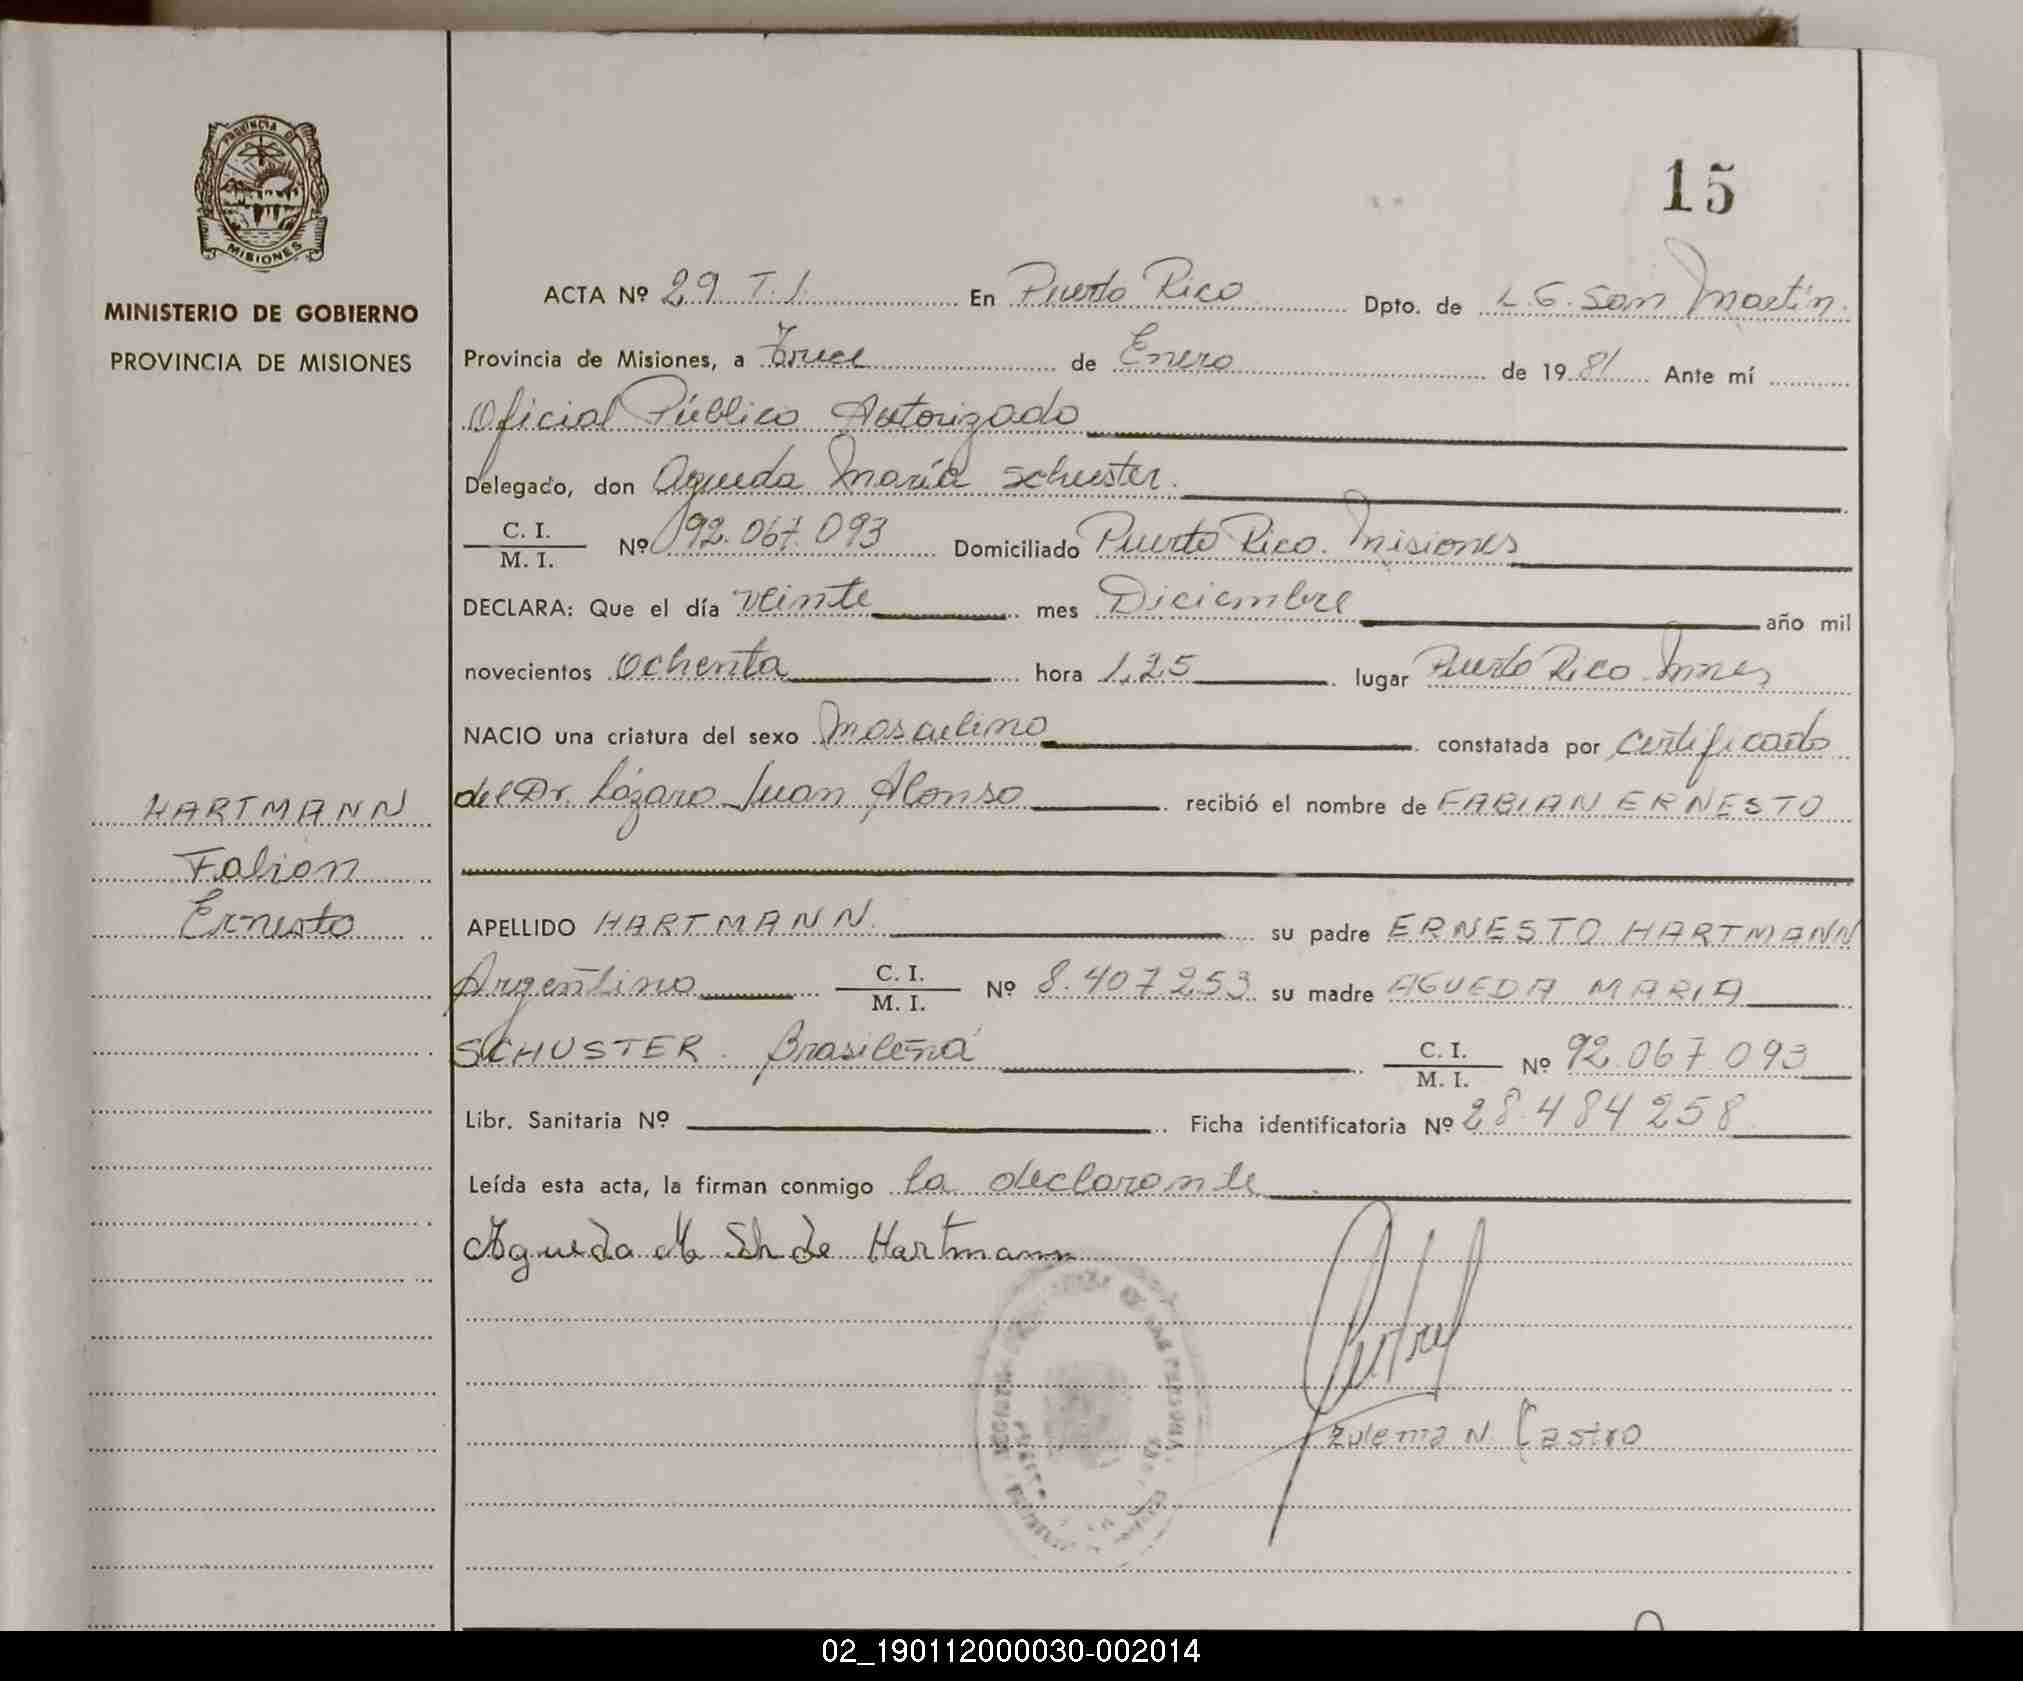 15
PROVINCIA DE
MISIONES
MINISTERIO DE GOBIERNO
PROVINCIA DE MISIONES
HARTMANN
Fabian
Ernesto
ACTA Nº 29 T. I. En Puerto Rico Dpto. de L. G. San Martín.
Provincia de Misiones, a Trece de Enero de 1981 Ante mí
Oficial Público Autorizado
Delegado, don Agueda María Schuster.
C. I.
M. I. Nº 92.067.093 Domiciliado Puerto Rico. Misiones
DECLARA: Que el día veinte mes Diciembre año mil
novecientos ochenta hora 1,25 lugar Puerto Rico. Mnes
NACIO una criatura del sexo Masculino constatada por certificado
del Dr. Lázaro Juan Alonso recibió el nombre de FABIAN ERNESTO
APELLIDO HARTMANN. su padre ERNESTO HARTMANN
Argentino C. I. M. I. Nº 8.407.253 su madre AGUEDA MARIA
SCHUSTER. Brasileña C. I. M. I. Nº 92.067.093
Libr. Sanitaria Nº Ficha identificatoria Nº 28.484.258
Leída esta acta, la firman conmigo la declarante
Agueda M Sch de Hartmann
Zulema N. Castro
02_190112000030-002014